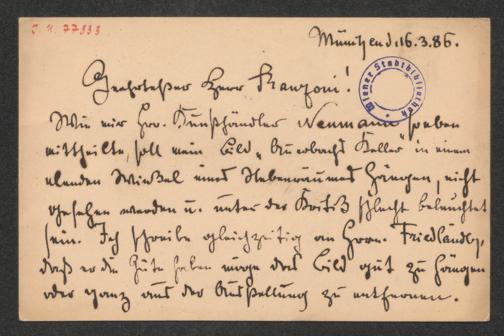 J. N. 77333
München d. 16.3.86.
Wiener Stadtbibliothek
Geehrtester Herr Ranzoni!
Wie mir Hrr. Kunsthändler Neumann soeben
mittheilte, soll mein Bild „Auerbachs Keller" in einem
elenden Winkel eines Nebenraumes hängen, nicht
gesehen werden u. unter der Kritik schlecht beleuchtet
sein. Ich schreibe gleichzeitig an Hrrn. Friedländer,
daß er die Güte haben möge das Bild gut zu hängen
oder ganz aus der Ausstellung zu entfernen.